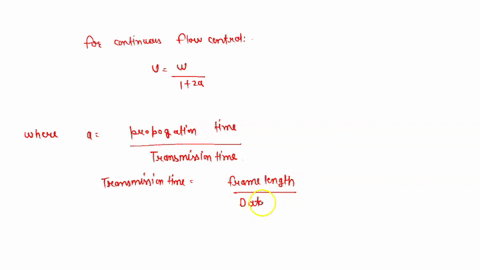 for continuous flow control:
U = w / 1+2a
where a = propogation time / Transmission time
Transmission time = frame length / Data